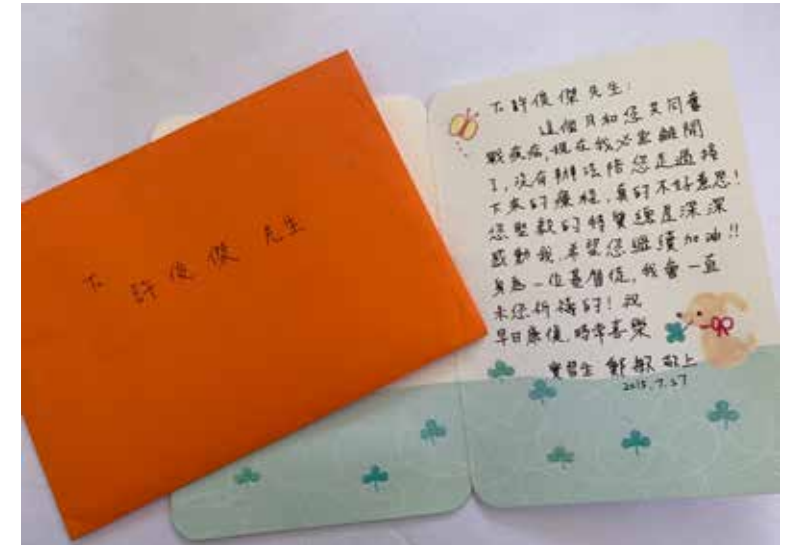 To 許俊傑 先生
To 許俊傑 先生:
這個月和您共同奮
戰疾病,現在我必需離開
了,沒有辦法陪您走過接
下來的療程,真的不好意思!
您堅毅的特質總是深深
感動我,希望您繼續加油!!
身為一位基督徒,我會一直
未您祈禱的!祝
早日康復,時常喜樂
實習生 鄭 敬上
2015.7.27